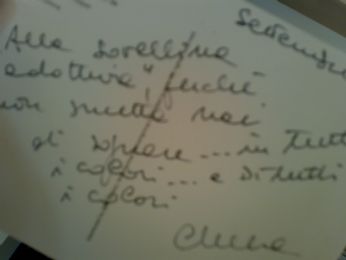 Settembre
Alla sorellina
adottiva", perché
non smetta mai
di sognare... in tutti
i colori... e di tutti
i colori